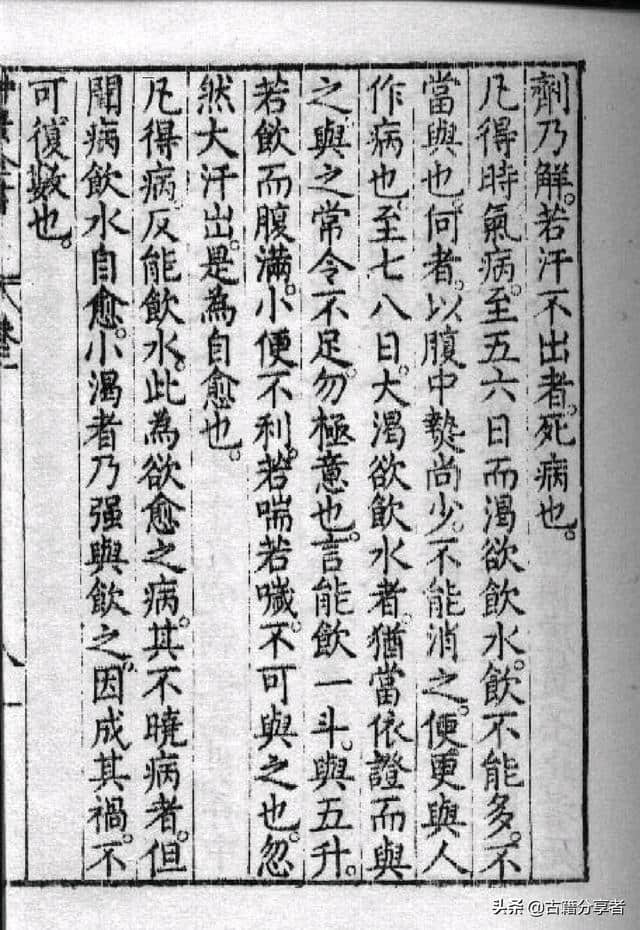 劑乃解。若汗不出者。死病也。
凡得時氣病。至五六日而渴欲飲水。飲不能多。不
當與也。何者。以腹中熱尚少。不能消之。便更與人
作病也。至七八日。大渴欲飲水者。猶當依證而與
之。與之常令不足。勿極意也。言能飲一斗。與五升。
若飲而腹滿。小便不利。若喘若噦。不可與之也。忽
然大汗出。是為自愈也。
凡得病。反能飲水。此為欲愈之病。其不曉病者。但
聞病飲水自愈。小渴者乃强與飲之。因成其禍。不
可復數也。
头条 @古籍分享者